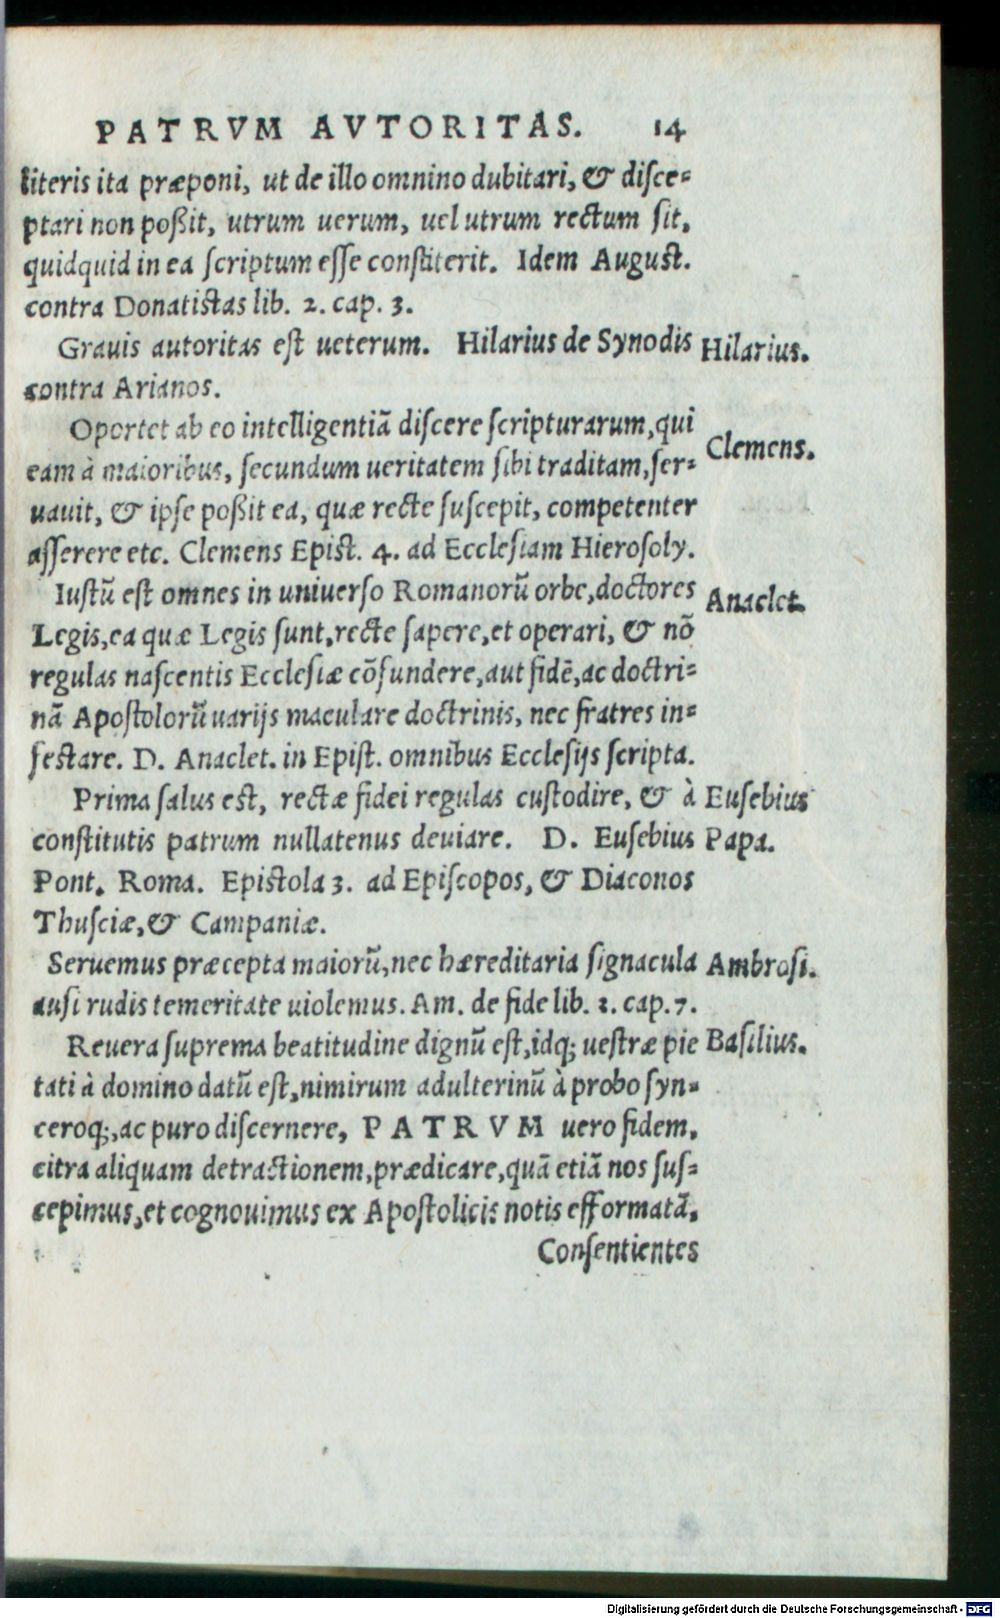 PATRVM AVTORITAS. 14
literis ita præponi, ut de illo omnino dubitari, & disce-
ptari non poßit, utrum uerum, uel utrum rectum sit,
quidquid in ea scriptum esse constiterit. Idem August.
contra Donatistas lib. 2. cap. 3.
Grauis autoritas est ueterum. Hilarius de Synodis
Hilarius.
contra Arianos.
Oportet ab eo intelligentiã discere scripturarum, qui
Clemens.
eam à maioribus, secundum ueritatem sibi traditam, ser-
uauit, & ipse poßit ea, quæ recte suscepit, competenter
asserere etc. Clemens Epist. 4. ad Ecclesiam Hierosoly.
Iustũ est omnes in uniuerso Romanorũ orbe, doctores
Anaclet.
Legis, ea quæ Legis sunt, recte sapere, et operari, & nõ
regulas nascentis Ecclesiæ cõfundere, aut fidẽ, ac doctri-
nã Apostolorũ uarijs maculare doctrinis, nec fratres in-
festare. D. Anaclet. in Epist. omnibus Ecclesijs scripta.
Prima salus est, rectæ fidei regulas custodire, & à
Eusebius
constitutis patrum nullatenus deuiare. D. Eusebius
Papa.
Pont. Roma. Epistola 3. ad Episcopos, & Diaconos
Thusciæ, & Campaniæ.
Seruemus præcepta maiorũ, nec hæreditaria signacula
Ambrosi.
ausi rudis temeritate uiolemus. Am. de fide lib. 1. cap. 7.
Reuera suprema beatitudine dignũ est, idq; uestræ pie
Basilius.
tati à domino datũ est, nimirum adulterinũ à probo syn-
ceroq;, ac puro discernere, PATRVM uero fidem,
citra aliquam detractionem, prædicare, quã etiã nos sus-
cepimus, et cognouimus ex Apostolicis notis efformatã.
Consentientes
Digitalisierung gefördert durch die Deutsche Forschungsgemeinschaft - DFG